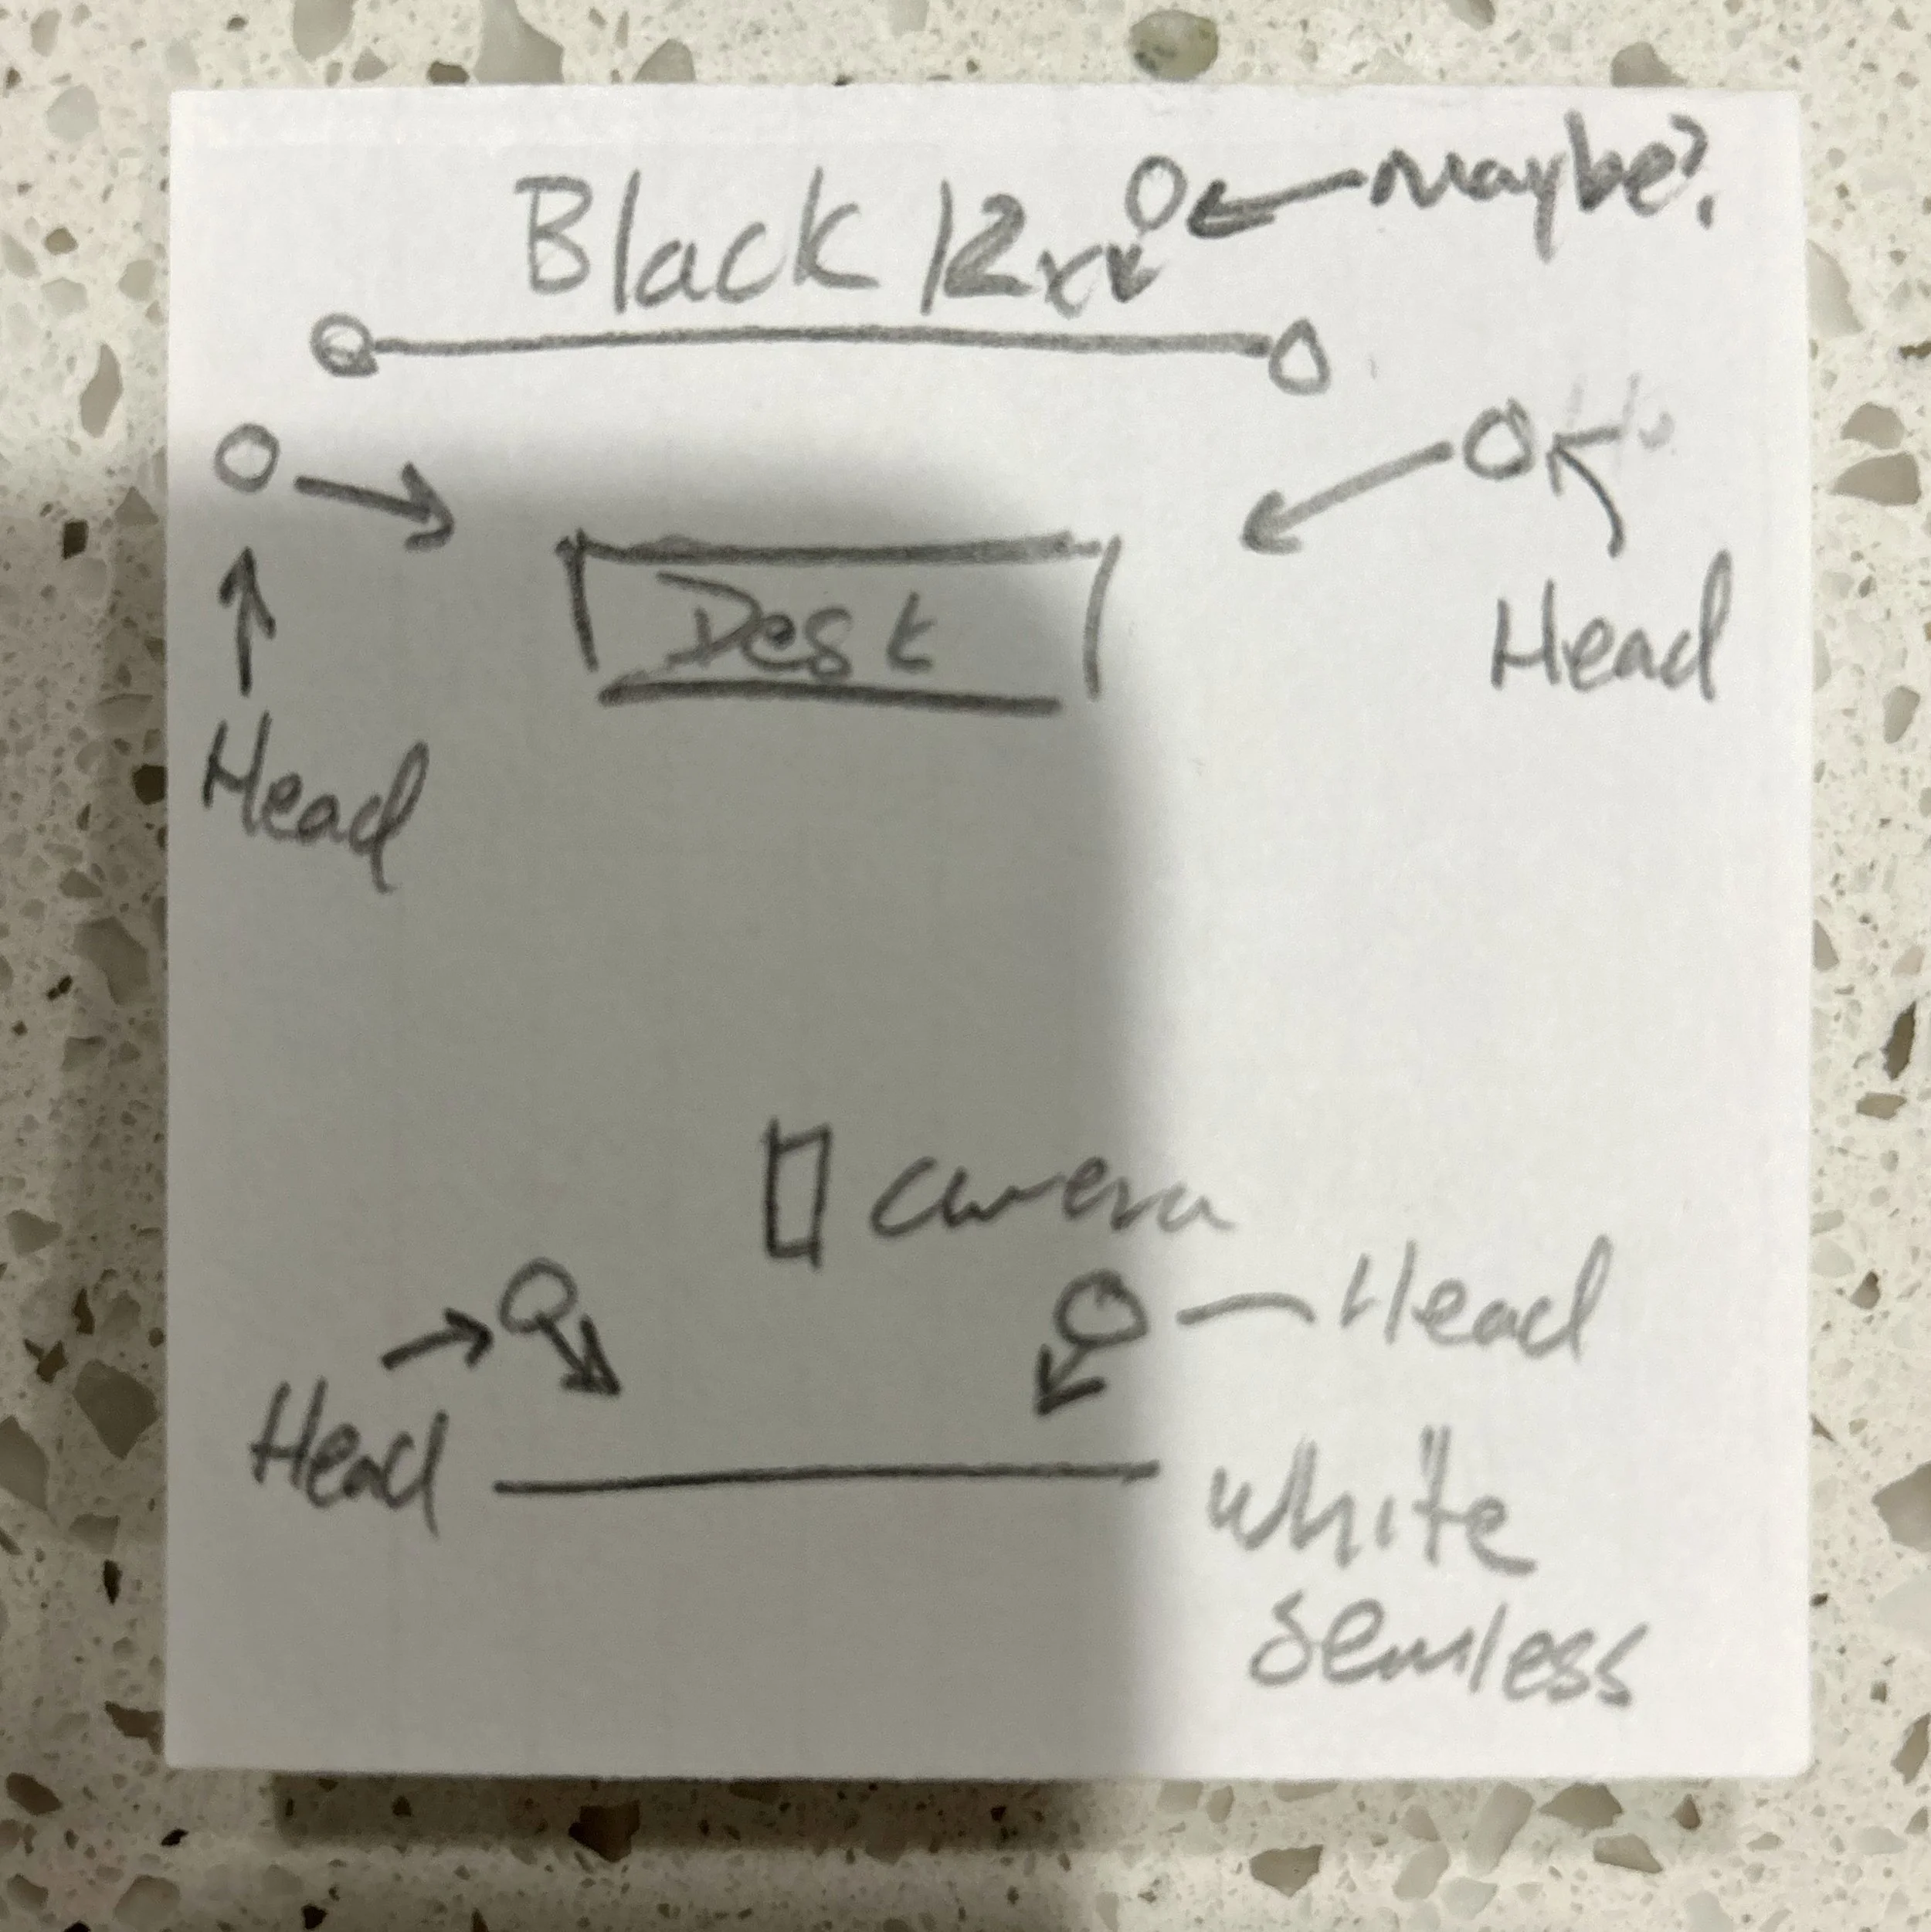 Maybe?
Black 12x
Desk
Head
Head
Camera
Head
Head
White
Semless